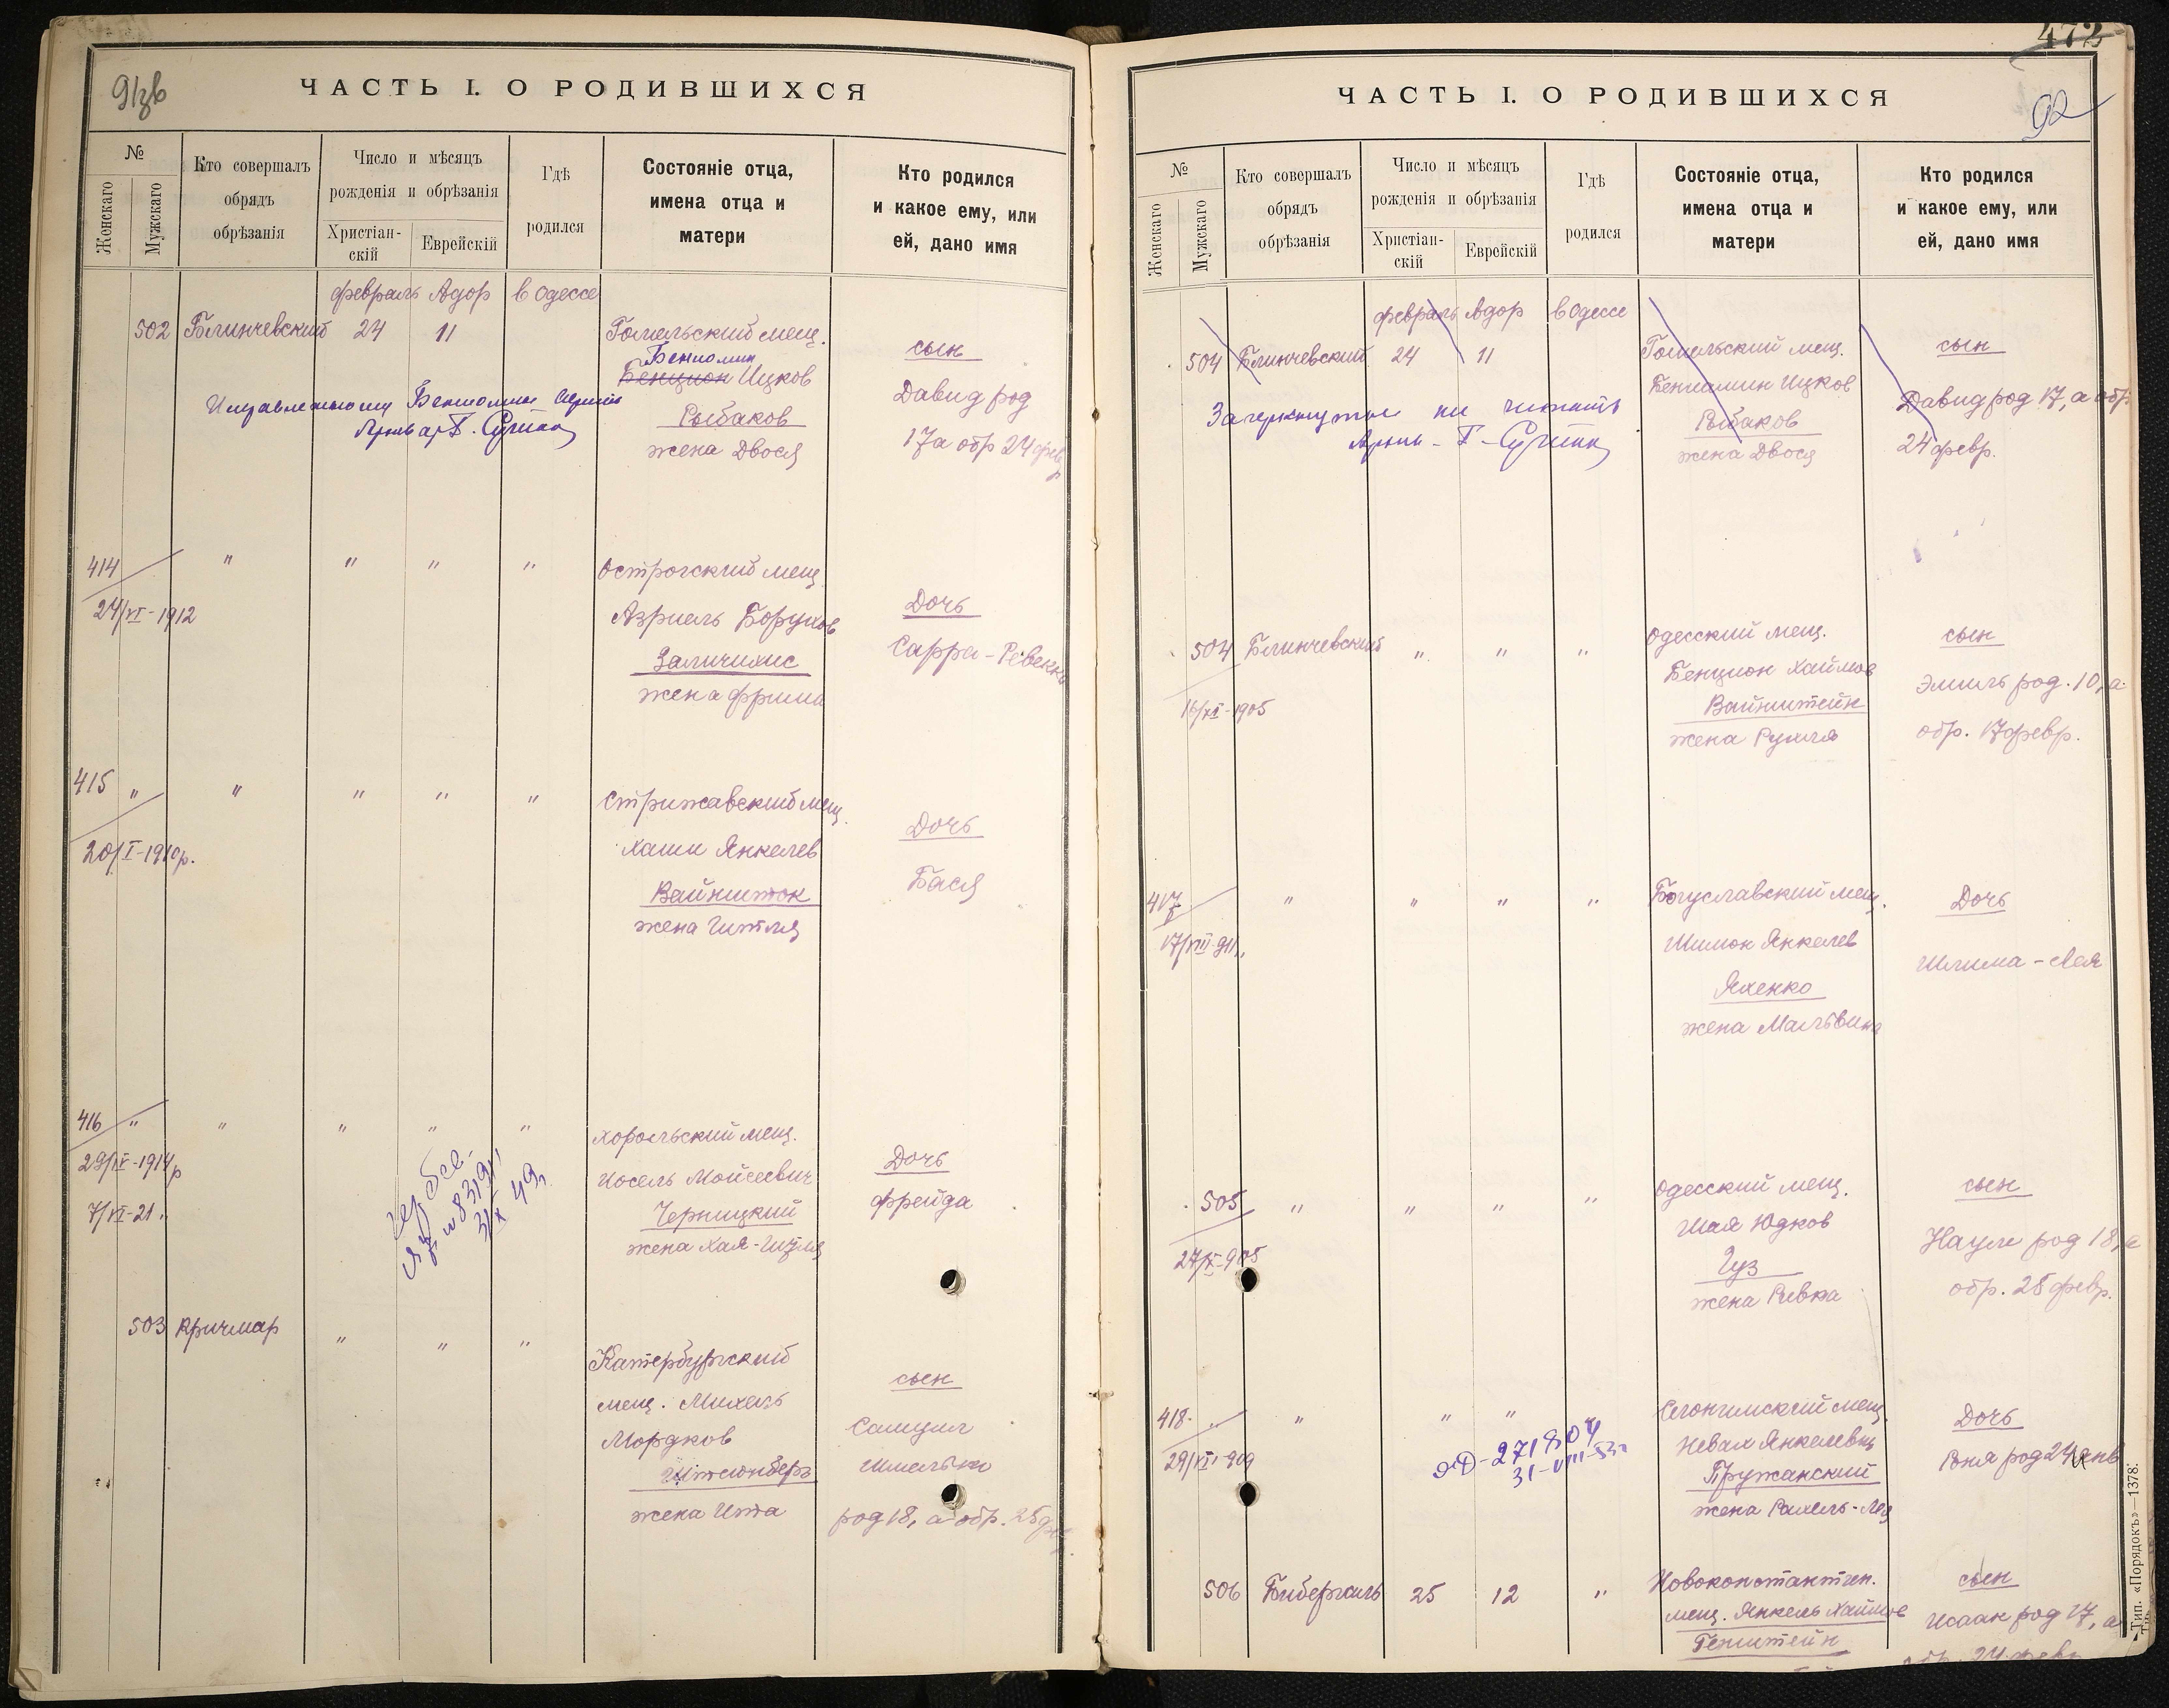 91зв
ЧАСТЬ I. О РОДИВШИХСЯ
№
Женскаго
Мужскаго
Кто совершалъ
обрядъ
обрѣзанія
Число и мѣсяцъ
рожденія и обрѣзанія
Христіан-
скій
Еврейскій
Гдѣ
родился
Состояніе отца,
имена отца и
матери
Кто родился
и какое ему, или
ей, дано имя
февраль Адор в Одессе
502 Блинчевский 24 11
Гомельский мещ.
Бениомин
Бенцион Ицков
Рыбаков
жена Двося
сын
Давид род
17 а обр 24 фев
Исправленному Бениомин
414 " " " "
24/VI-1912
Острогский мещ.
Азриель Борухов
Заличихис
жена Фрима
Дочь
Сарра-Ревекка
415 " " " " "
20/I-1910 р.
Стрижавский мещ.
Хаим Янкелев
Вайншток
жена Гитля
Дочь
Бася
416 " " " " "
29/IV-1914 р
7/VI-21 "
Хорольский мещ.
Иосель Мойсеевич
Черницкий
жена Хая-
Дочь
Фрейда
31/X 49
503 Кричмар " " "
Катербургский
мещ. Михель
Мордков
жена Ита
сын
Самуил
Шмелько
род 18, а обр. 25
472
92
ЧАСТЬ I. О РОДИВШИХСЯ
№
Женскаго
Мужскаго
Кто совершалъ
обрядъ
обрѣзанія
Число и мѣсяцъ
рожденія и обрѣзанія
Христіан-
скій
Еврейскій
Гдѣ
родился
Состояніе отца,
имена отца и
матери
Кто родился
и какое ему, или
ей, дано имя
февраль Адор в Одессе
504 Блинчевский 24 11
Гомельский мещ.
Бениамин Ицков
Рыбаков
жена Двося
сын
Давид род 17, а обр
24 февр.
Зачеркнутое не читать
504 Блинчевский " " "
16/XI-1905
Одесский мещ.
Бенцион Хаймов
Вайнштейн
жена Рухля
сын
Эмиль род. 10, а
обр. 17 февр.
417 " " " "
17/VIII 911 "
Богуславский мещ.
Шимон Янкелев
Яхенко
жена Мальвина
Дочь
Шлима-Лея
505 " " " "
27/X-905
Одесский мещ.
Шая Юдков
Гуз
жена Ривка
сын
Наум род 18, а
обр. 25 февр.
418 " " " "
29/VII 909
271804
31-VIII-53
Слонимский мещ.
Невах Янкелевич
Пружанский
жена Рахель-Лея
Дочь
Роня род 24 янв
506 Бибергаль 25 12 "
Новоконстантин.
мещ. Янкель Хаимов
Генштейн
сын
Исаак род 17, а
обр. 24 февр
Тип. «Порядокъ»—1378.